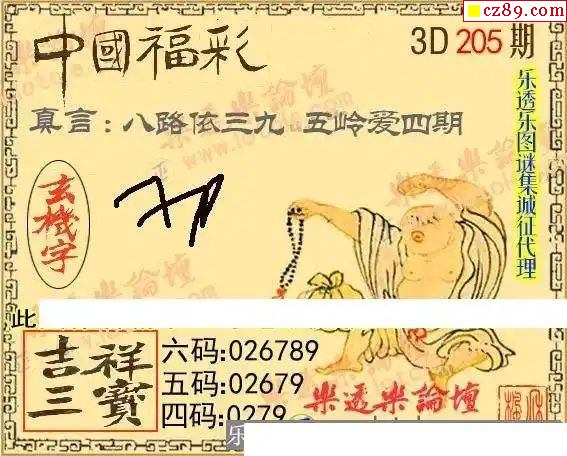 cz89.com
中國福彩
3D 205 期
真言：八路依三九 五岭爱四期
乐透乐图谜集城征代理
玄機字
此
吉祥三寶
六码:026789
五码:02679
四码:0279
樂透樂論壇
乐